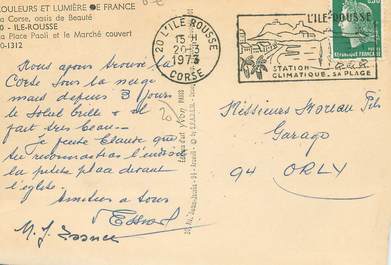 COULEURS ET LUMIÈRE DE FRANCE
La Corse, oasis de Beauté
20 - ILE-ROUSSE
La Place Paoli et le Marché couvert
0-1312
20 L'ILE ROUSSE
15 H
20-3
1973
CORSE
L'ILE-ROUSSE
STATION
CLIMATIQUE. SA PLAGE
0,30
Nous avons trouvé la
Corse sous la neige
mais depuis 3 jours
le soleil brille & il
fait très beau -
Je pense Claude que
tu reconnaîtras l'endroit
la petite place devant
l'église.
Amitiés à tous
Messieurs Moreau Fils
Garage
94 ORLY